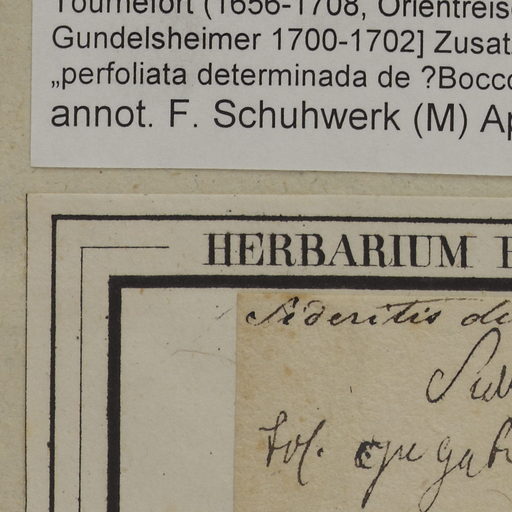 Tournefort (1656-1708, Orientreis
Gundelsheimer 1700-1702] Zusat
„perfoliata determinada de ?Bocco
annot. F. Schuhwerk (M) Ap
HERBARIUM
Sideritis